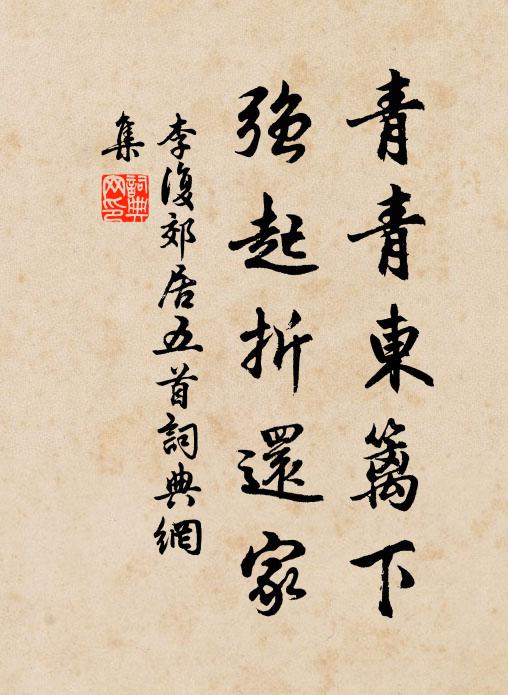 青青東篱下
強起折還家
李復郊居五首詞典網
集
詞典网印